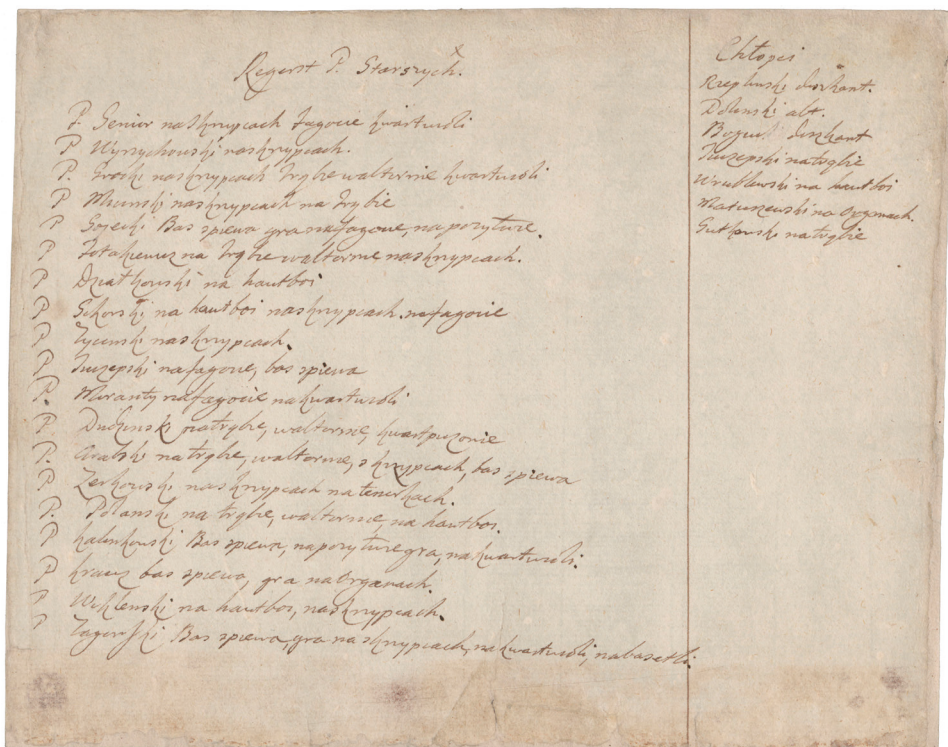 Regerst P. Starszych.
P. Senior na skrzypcach fagocie kwartwioli
P Wyrzychowski na skrzypcach.
P. na skrzypcach trąbie waltornie kwartwioli
P na skrzypcach na trąbie
P Gojecki Bas spiewa gra na fagocie, na pozyturze.
P na trąbie waltornie na skrzypcach.
P Dziatkowski na hautboi
P Sikorski na hautboi na skrzypcach na fagocie
P na skrzypcach.
P Juszepski na fagocie, bas spiewa
P. Muranty na fagocie na kwartwioli
P. na trąbie, waltornie, kwartpuzonie
P. na trąbie, waltornie, skrzypcach, bas spiewa
P Zerkowski na skrzypcach na tenorkach.
P. Polanski na trąbie, waltornie, na hautboi.
P Kalinkowski Bas spiewa, na pozyturze gra, na kwartwioli.
P Krauz bas spiewa, gra na Organach.
P Wiklenski na hautboi, na skrzypcach.
P Bas spiewa, gra na skrzypcach, na kwartwioli, na basetli.
Chłopcy
Rzeplinski diszkant.
Dolinski alt.
diszkant
Juszepski na trąbie
Wrublewski na hautboi
Matuszewski na Organach.
Gutkowski na trąbie